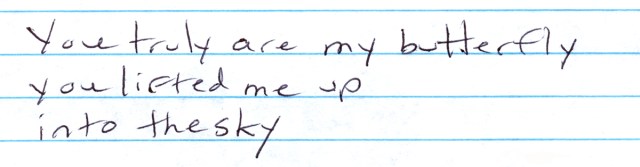 You truly are my butterfly
you lifted me up
into the sky